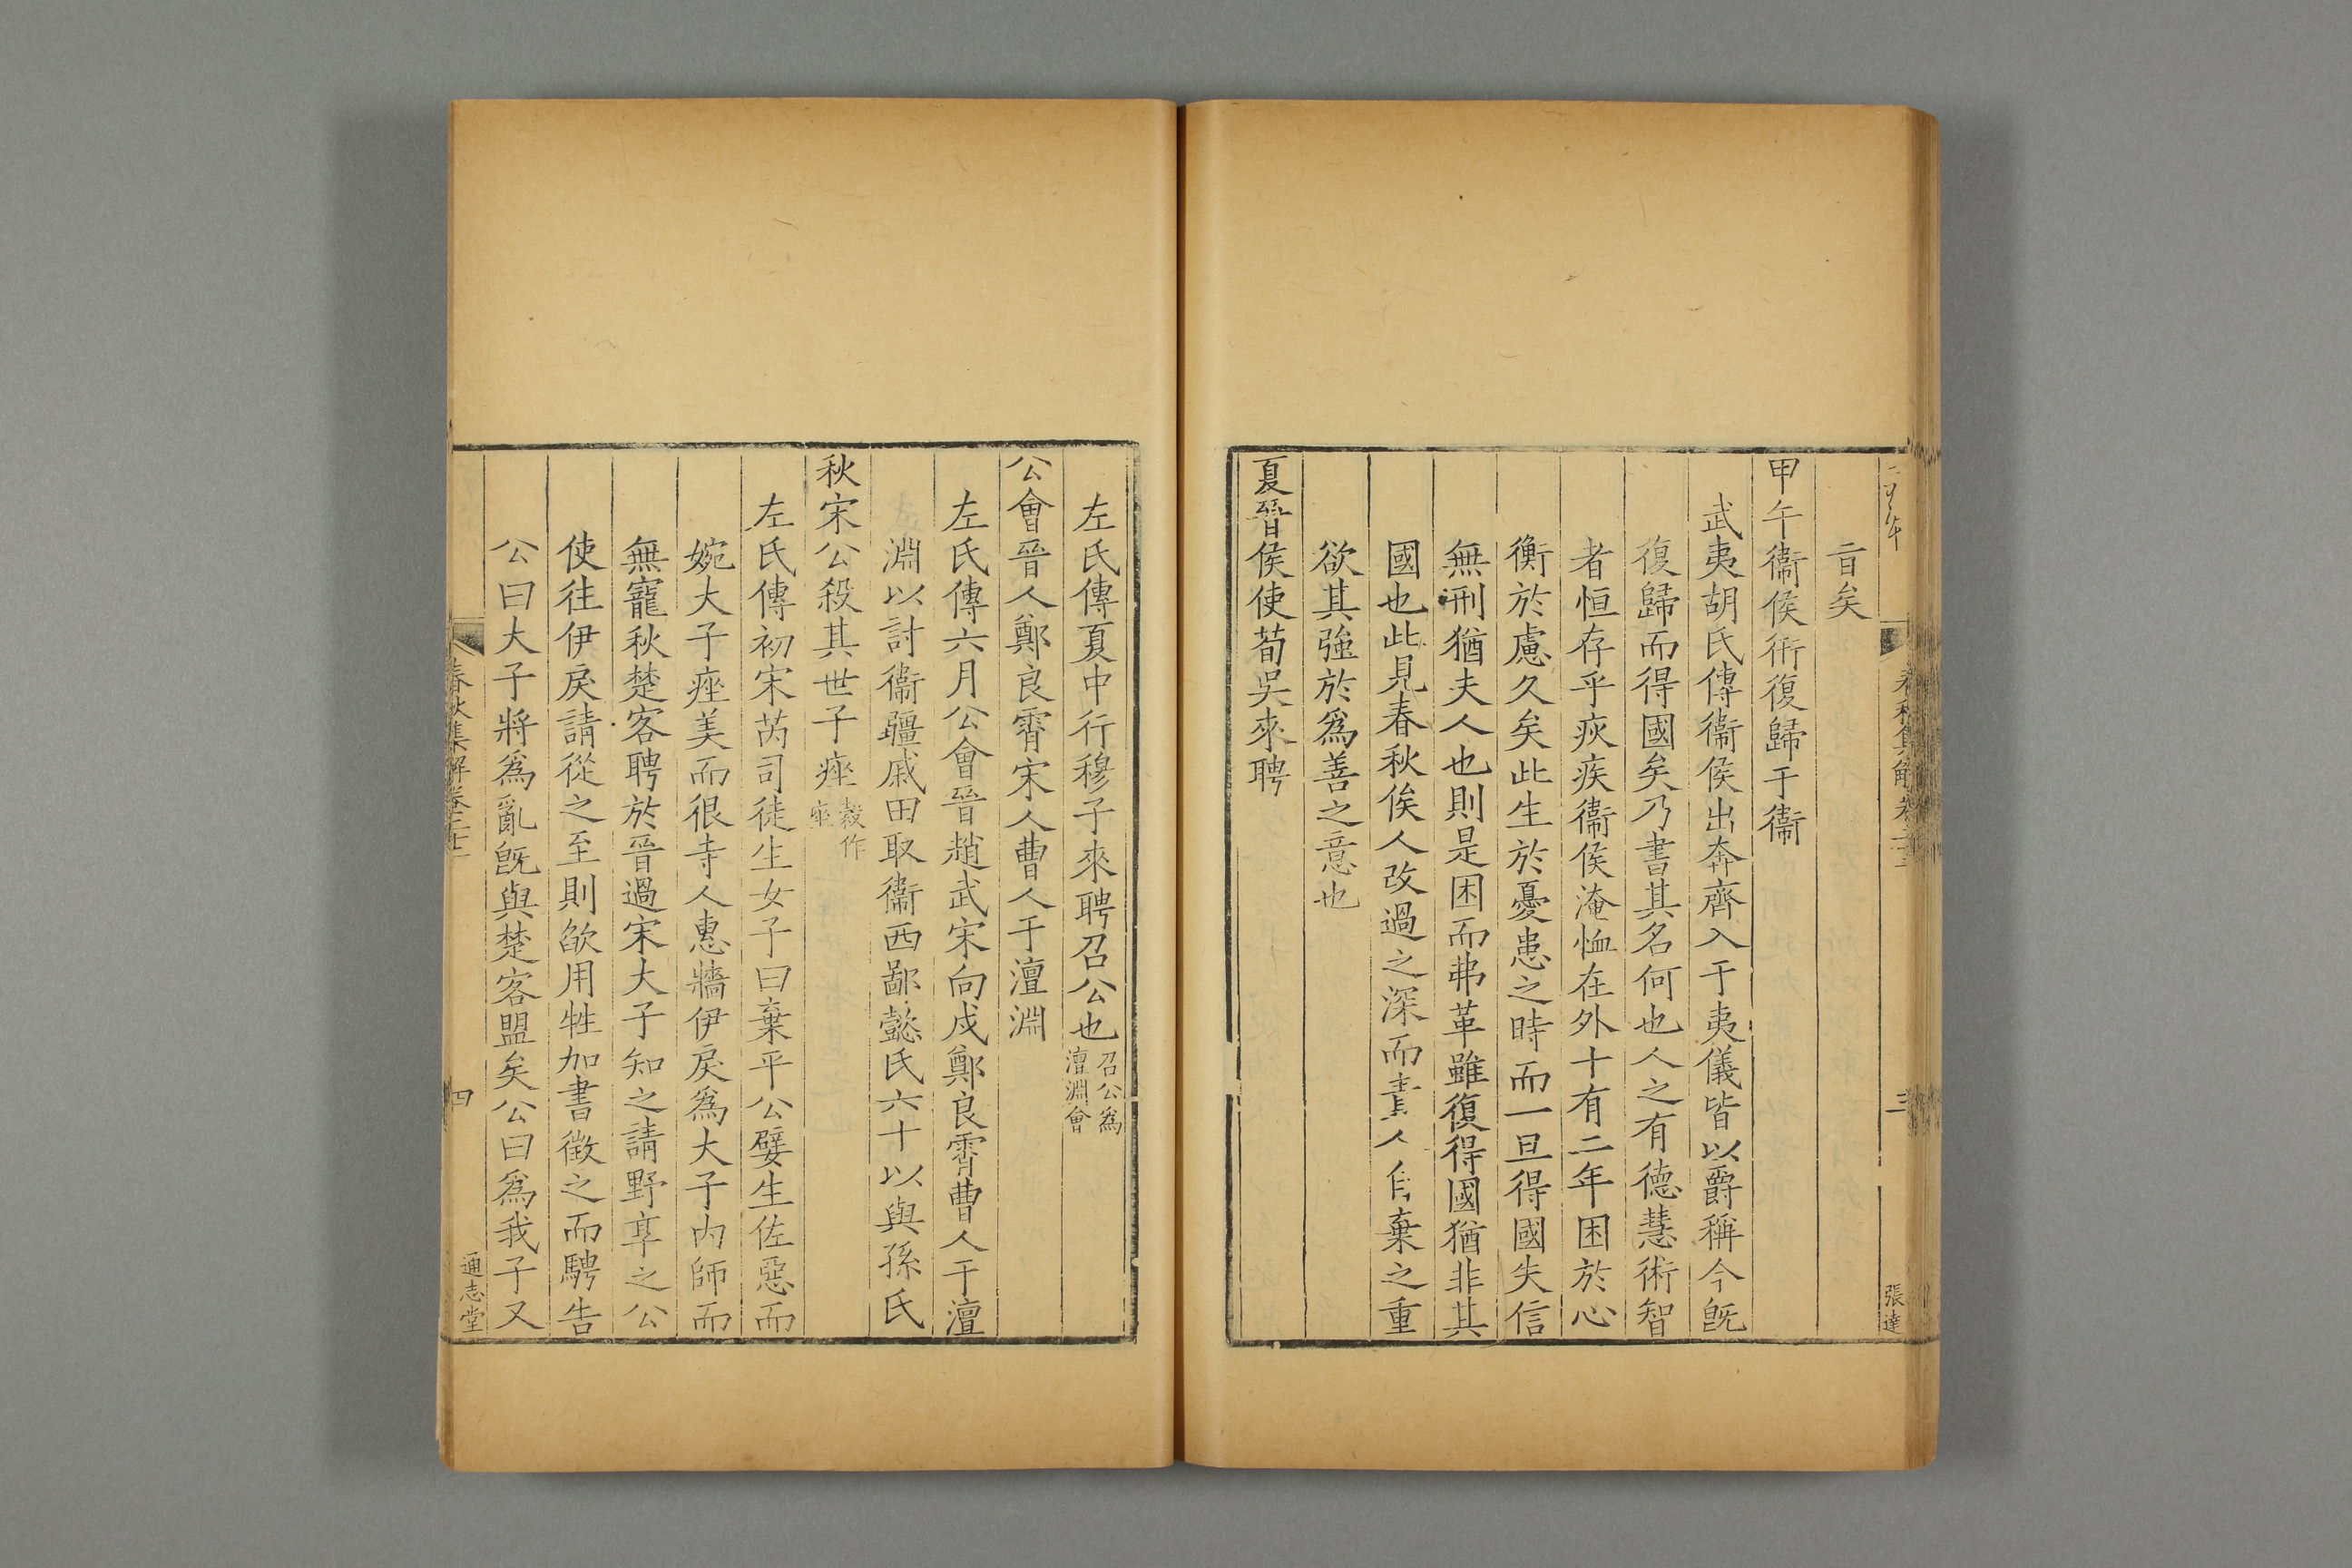 旨矣
甲午衞侯衎復歸于衞
武夷胡氏傳衞侯出奔齊入于夷儀皆以爵稱今旣
復歸而得國矣乃書其名何也人之有德慧術智
者恒存乎疢疾衞侯淹恤在外十有二年困於心
衡於慮久矣此生於憂患之時而一旦得國失信
無刑猶夫人也則是困而弗革雖復得國猶非其
國也此見春秋俟人改過之深而責人自棄之重
欲其強於爲善之意也
夏晉侯使荀吳來聘
左氏傳夏中行穆子來聘召公也召公爲澶淵會
公會晉人鄭良霄宋人曹人于澶淵
左氏傳六月公會晉趙武宋向戍鄭良霄曹人于澶
淵以討衞疆戚田取衞西鄙懿氏六十以與孫氏
秋宋公殺其世子痤穀作座
左氏傳初宋芮司徒生女子曰棄平公嬖生佐惡而
婉大子痤美而很寺人惠牆伊戾爲大子內師而
無寵秋楚客聘於晉過宋大子知之請野享之公
使往伊戾請從之至則欿用牲加書徵之而騁告
公曰大子將爲亂旣與楚客盟矣公曰爲我子又
春秋集解卷二十
四
通志堂
三
張達